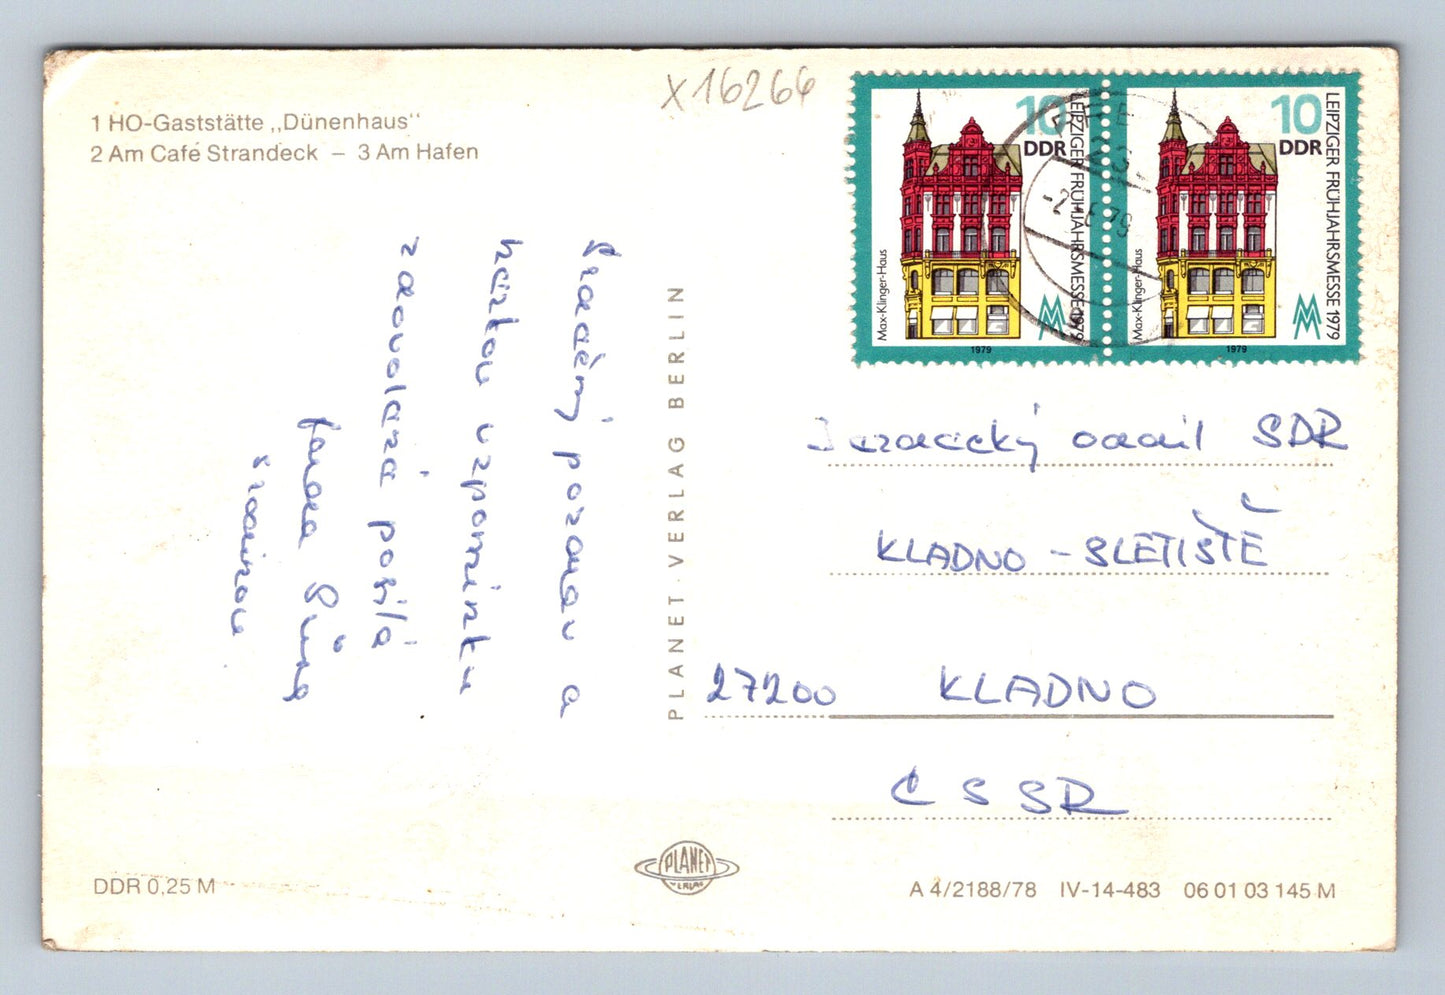 X16266
1 HO-Gaststätte „Dünenhaus“
2 Am Café Strandeck – 3 Am Hafen
10
DDR
LEIPZIGER FRÜHJAHRSMESSE 1979
Max-Klinger-Haus
1979
10
DDR
LEIPZIGER FRÜHJAHRSMESSE 1979
Max-Klinger-Haus
1979
Srdečný pozdrav a
hezkou vzpomínku
z dovolené posílá
rodinou
PLANET-VERLAG BERLIN
oddíl SDR
KLADNO - SLETIŠTĚ
27200 KLADNO
ČSSR
PLANET
VERLAG
DDR 0,25 M
A 4/2188/78 IV-14-483 06 01 03 145 M